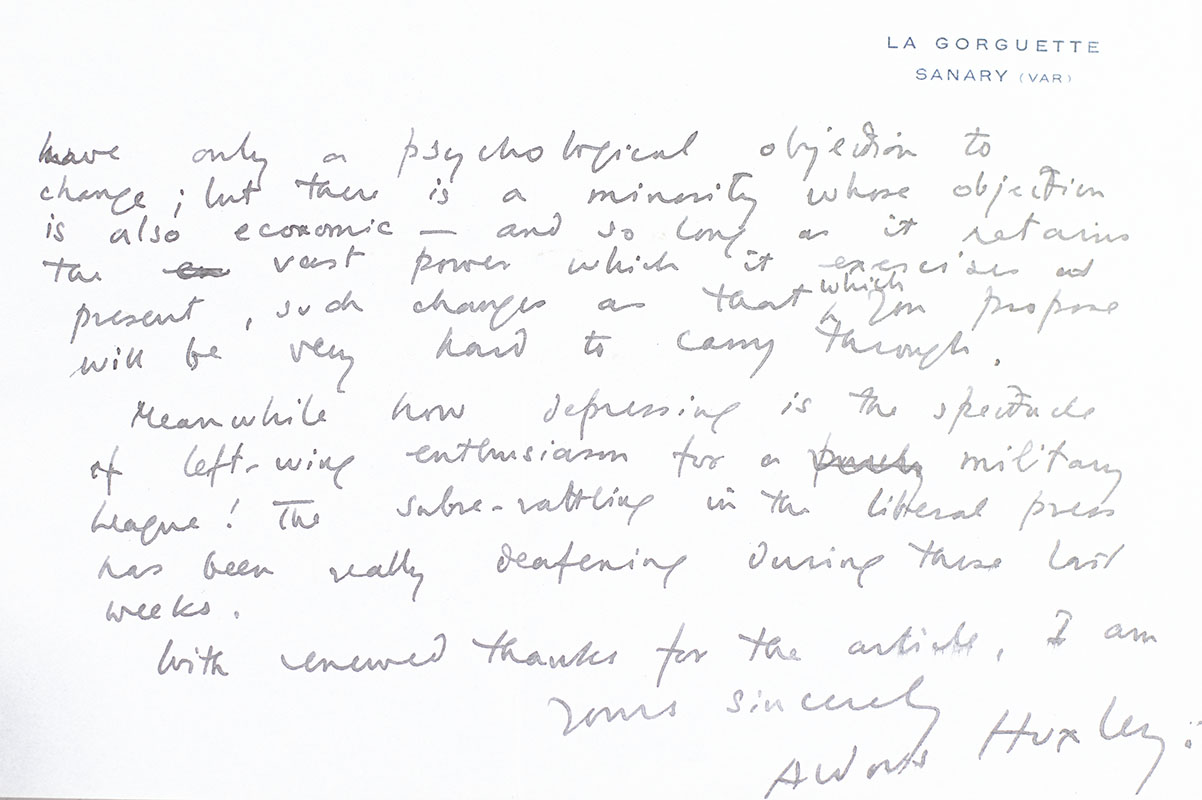 LA GORGUETTE
SANARY (VAR)
have only a psychological objection to
change; but there is a minority whose objection
is also economic — and so long as it retains
the vast power which it exercises at
present, such changes as that which you propose
will be very hard to carry through.
Meanwhile how depressing is the spectacle
of left-wing enthusiasm for a purely military
League! The sabre-rattling in the liberal press
has been really deafening during these last
weeks.
With renewed thanks for the article, I am
Yours sincerely
Aldous Huxley.